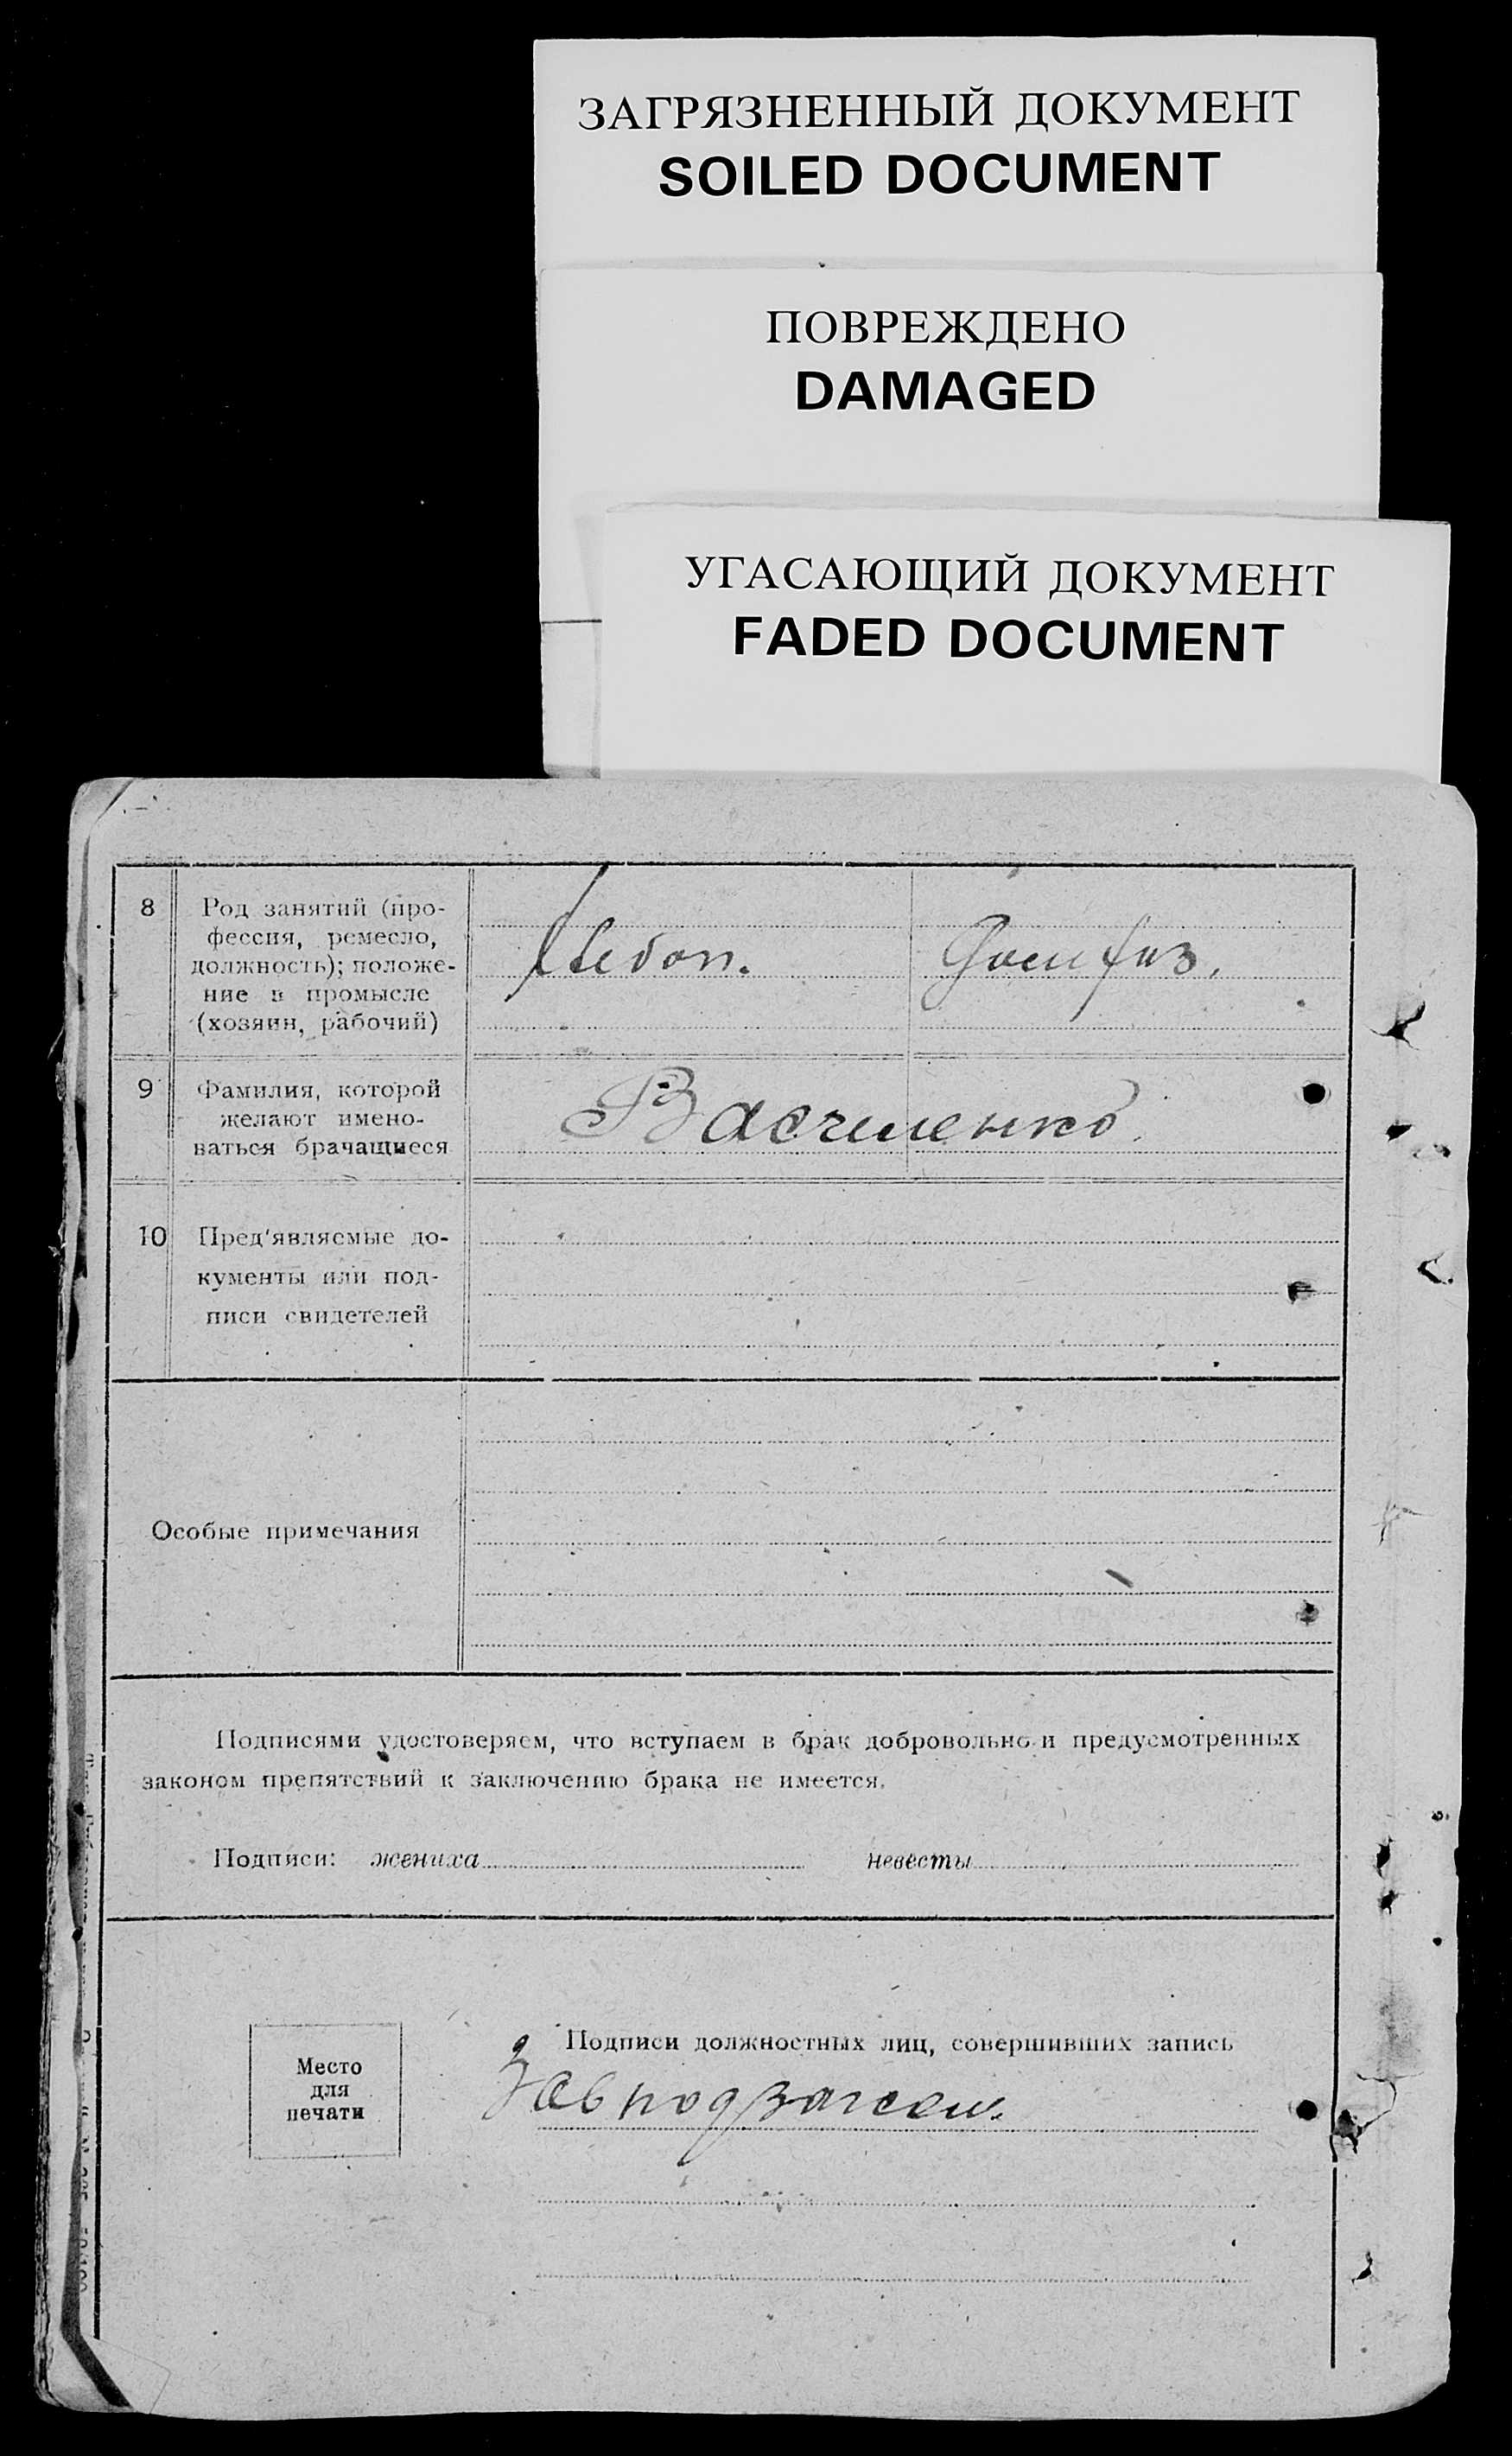 ЗАГРЯЗНЕННЫЙ ДОКУМЕНТ
SOILED DOCUMENT
ПОВРЕЖДЕНО
DAMAGED
УГАСАЮЩИЙ ДОКУМЕНТ
FADED DOCUMENT
8
Род занятий (про-
фессия, ремесло,
должность); положе-
ние в промысле
(хозяин, рабочий)
9
Фамилия, которой
желают имено-
ваться брачащиеся
10
Пред'являемые до-
кументы или под-
писи свидетелей
Особые примечания
Подписями удостоверяем, что вступаем в брак добровольно и предусмотренных
законом препятствий к заключению брака не имеется.
Подписи: жениха невесты
Место
для
печати
Подписи должностных лиц, совершивших запись